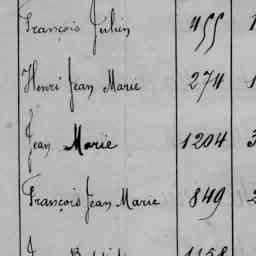 François Julien 455
Henri Jean Marie 274
Jean Marie 1204
François Jean Marie 849